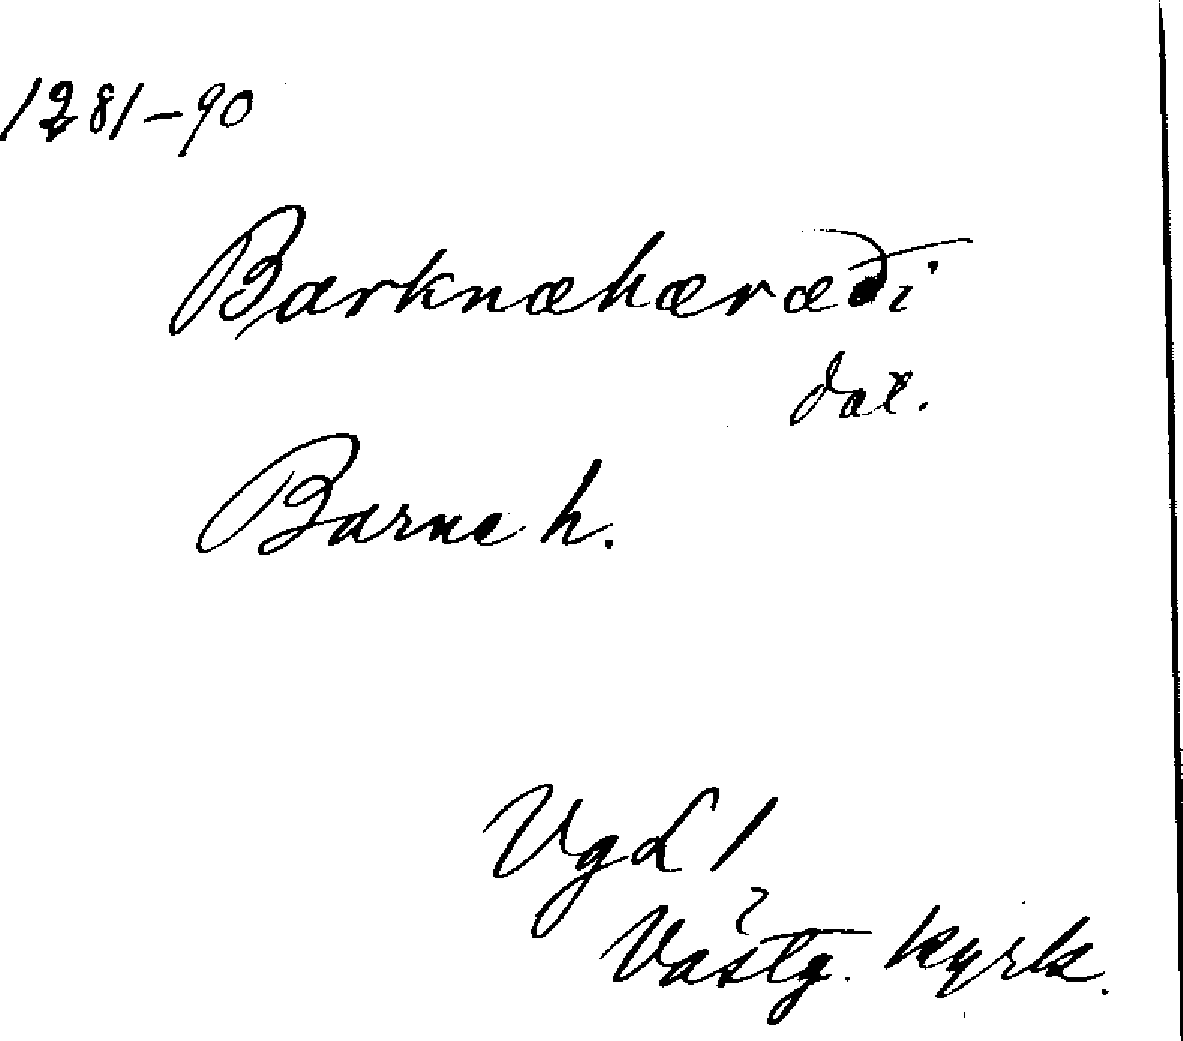 1281-90
Barknæhæræði
dat.
Barne h.
VgL 1
Västg. kyrk.